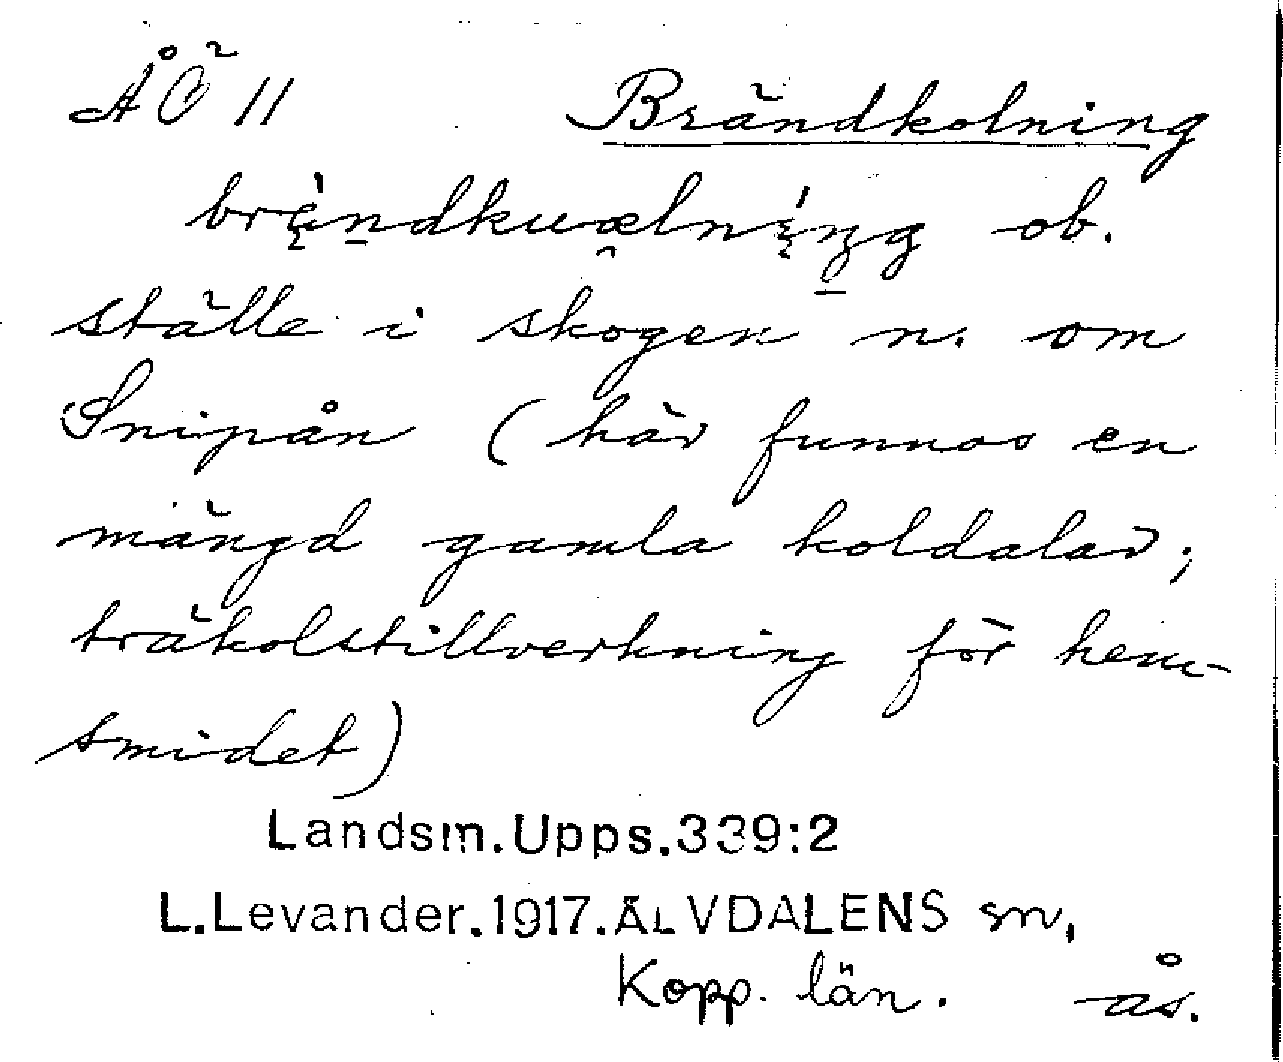 ÅÖ 11 Brändkolning
brändkuælning ob.
ställe i skogen n. om
Snipån (här funnos en
mängd gamla koldalar;
träkolstillverkning för hem-
smidet)
Landsm.Upps.339:2
L.Levander.1917.ÄLVDALENS sn,
Kopp. län. ås.